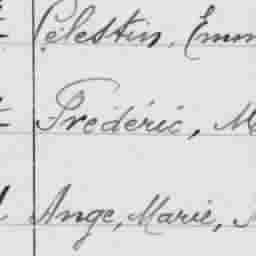 Célestin, Emm
Frédéric, M
Ange, Marie,